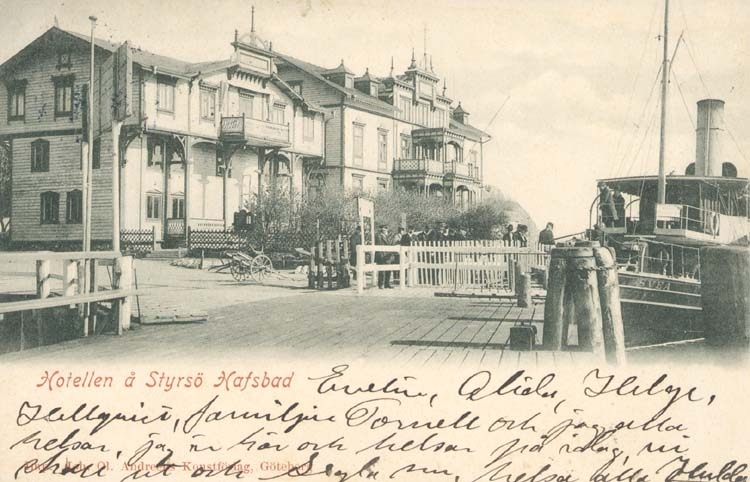 Hotellen å Styrsö Hafsbad
Eveline, Alida, Helge,
Hellquist, familjen Tornell och jag alla
helsar, ja, är här och helsar på idag, vi
skall ut och Segla nu, helsa alla Hulda
Ol. Andreens Konstförlag, Göteborg